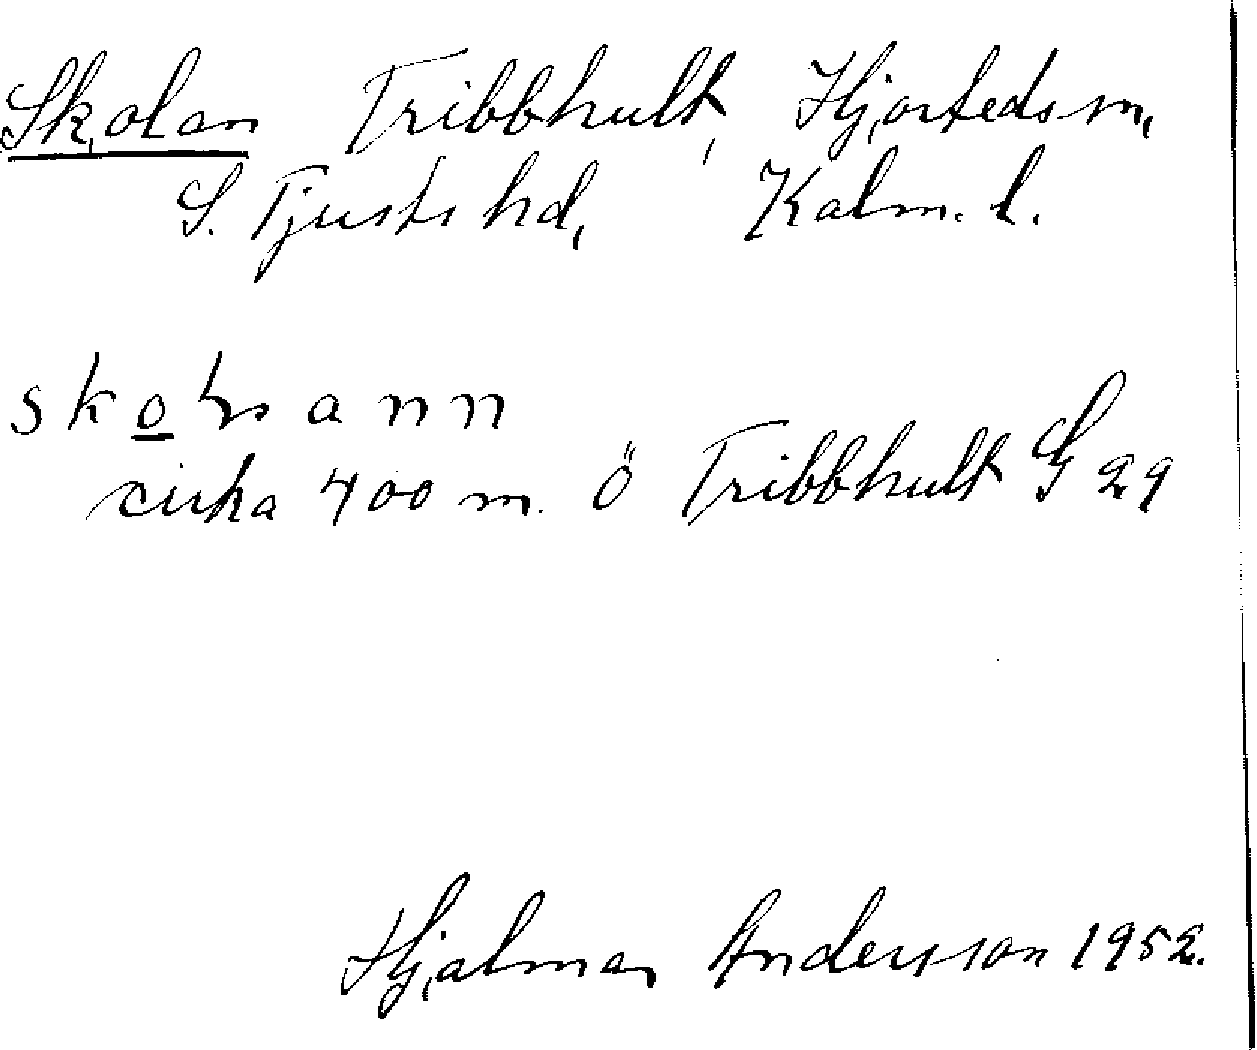 Skolan Tribbhult, Hjorteds sn,
S. Tjusts hd, Kalm. l.
skolann
cirka 400 m. Ö Tribbhult S 29
Hjalmar Andersson 1952.